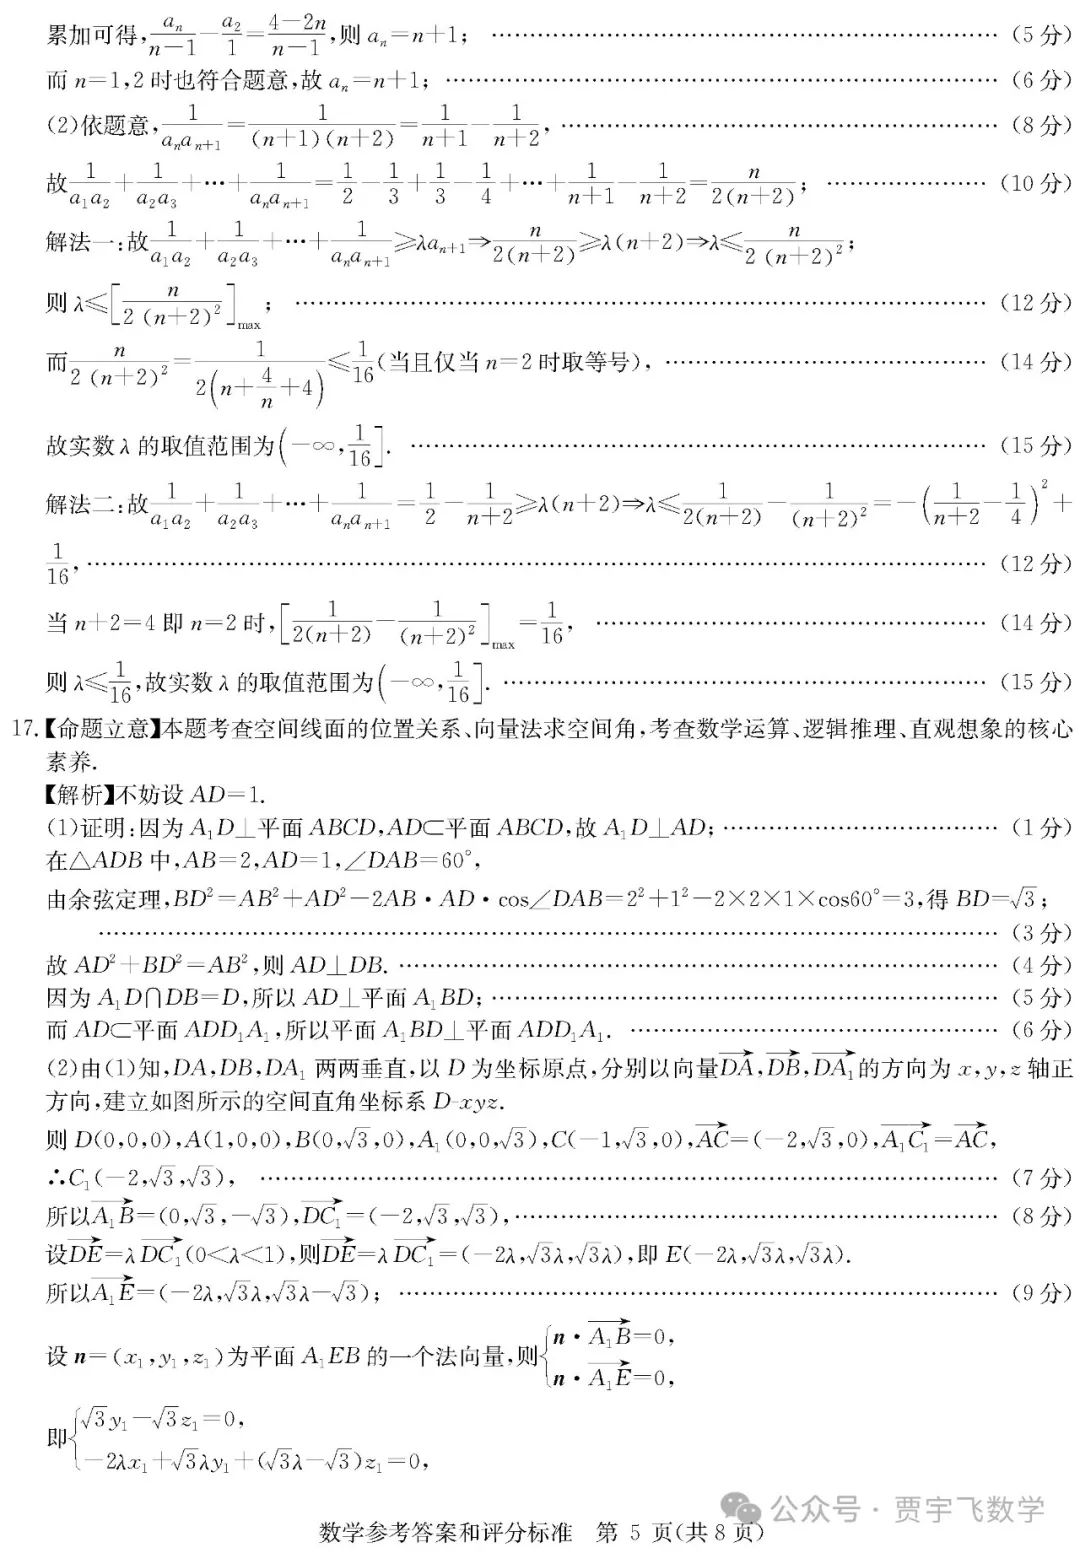 累加可得,$\frac{a_n}{n-1}-\frac{a_2}{1}=\frac{4-2n}{n-1}$,则 $a_n=n+1$; ……(5分)
而 n=1,2 时也符合题意,故 $a_n=n+1$; ……(6分)
(2)依题意,$\frac{1}{a_na_{n+1}}=\frac{1}{(n+1)(n+2)}=\frac{1}{n+1}-\frac{1}{n+2}$, ……(8分)
故$\frac{1}{a_1a_2}+\frac{1}{a_2a_3}+\cdots+\frac{1}{a_na_{n+1}}=\frac{1}{2}-\frac{1}{3}+\frac{1}{3}-\frac{1}{4}+\cdots+\frac{1}{n+1}-\frac{1}{n+2}=\frac{n}{2(n+2)}$; ……(10分)
解法一:故$\frac{1}{a_1a_2}+\frac{1}{a_2a_3}+\cdots+\frac{1}{a_na_{n+1}}\geqslant\lambda a_{n+1}\Rightarrow\frac{n}{2(n+2)}\geqslant\lambda(n+2)\Rightarrow\lambda\leqslant\frac{n}{2(n+2)^2}$;
则 $\lambda\leqslant\left[\frac{n}{2(n+2)^2}\right]_{\max}$; ……(12分)
而$\frac{n}{2(n+2)^2}=\frac{1}{2\left(n+\frac{4}{n}+4\right)}\leqslant\frac{1}{16}$(当且仅当 n=2 时取等号), ……(14分)
故实数 λ 的取值范围为$\left(-\infty,\frac{1}{16}\right]$. ……(15分)
解法二:故$\frac{1}{a_1a_2}+\frac{1}{a_2a_3}+\cdots+\frac{1}{a_na_{n+1}}=\frac{1}{2}-\frac{1}{n+2}\geqslant\lambda(n+2)\Rightarrow\lambda\leqslant\frac{1}{2(n+2)}-\frac{1}{(n+2)^2}=-\left(\frac{1}{n+2}-\frac{1}{4}\right)^2+$
$\frac{1}{16}$, ……(12分)
当 n+2=4 即 n=2 时,$\left[\frac{1}{2(n+2)}-\frac{1}{(n+2)^2}\right]_{\max}=\frac{1}{16}$, ……(14分)
则 $\lambda\leqslant\frac{1}{16}$,故实数 λ 的取值范围为$\left(-\infty,\frac{1}{16}\right]$. ……(15分)
17.【命题立意】本题考查空间线面的位置关系、向量法求空间角,考查数学运算、逻辑推理、直观想象的核心
素养.
【解析】不妨设 AD=1.
(1)证明:因为 $A_1D\perp$平面 ABCD,AD⊂平面 ABCD,故 $A_1D\perp AD$; ……(1分)
在△ADB 中,AB=2,AD=1,∠DAB=60°,
由余弦定理,$BD^2=AB^2+AD^2-2AB\cdot AD\cdot\cos\angle DAB=2^2+1^2-2\times2\times1\times\cos60°=3$,得 $BD=\sqrt{3}$;
……(3分)
故 $AD^2+BD^2=AB^2$,则 AD⊥DB. ……(4分)
因为 $A_1D\cap DB=D$,所以 AD⊥平面 $A_1BD$; ……(5分)
而 AD⊂平面 $ADD_1A_1$,所以平面 $A_1BD\perp$平面 $ADD_1A_1$. ……(6分)
(2)由(1)知,DA,DB,$DA_1$ 两两垂直,以 D 为坐标原点,分别以向量$\overrightarrow{DA},\overrightarrow{DB},\overrightarrow{DA_1}$的方向为 x,y,z 轴正
方向,建立如图所示的空间直角坐标系 D-xyz.
则 $D(0,0,0),A(1,0,0),B(0,\sqrt{3},0),A_1(0,0,\sqrt{3}),C(-1,\sqrt{3},0),\overrightarrow{AC}=(-2,\sqrt{3},0),\overrightarrow{A_1C_1}=\overrightarrow{AC}$,
∴$C_1(-2,\sqrt{3},\sqrt{3})$, ……(7分)
所以$\overrightarrow{A_1B}=(0,\sqrt{3},-\sqrt{3}),\overrightarrow{DC_1}=(-2,\sqrt{3},\sqrt{3})$, ……(8分)
设$\overrightarrow{DE}=\lambda\overrightarrow{DC_1}(0<\lambda<1)$,则$\overrightarrow{DE}=\lambda\overrightarrow{DC_1}=(-2\lambda,\sqrt{3}\lambda,\sqrt{3}\lambda)$,即 $E(-2\lambda,\sqrt{3}\lambda,\sqrt{3}\lambda)$.
所以$\overrightarrow{A_1E}=(-2\lambda,\sqrt{3}\lambda,\sqrt{3}\lambda-\sqrt{3})$; ……(9分)
设 $\boldsymbol{n}=(x_1,y_1,z_1)$为平面 $A_1EB$ 的一个法向量,则$\begin{cases}\boldsymbol{n}\cdot\overrightarrow{A_1B}=0,\\\boldsymbol{n}\cdot\overrightarrow{A_1E}=0,\end{cases}$
即$\begin{cases}\sqrt{3}y_1-\sqrt{3}z_1=0,\\-2\lambda x_1+\sqrt{3}\lambda y_1+(\sqrt{3}\lambda-\sqrt{3})z_1=0,\end{cases}$
公众号·贾宇飞数学
数学参考答案和评分标准 第 5 页(共 8 页)